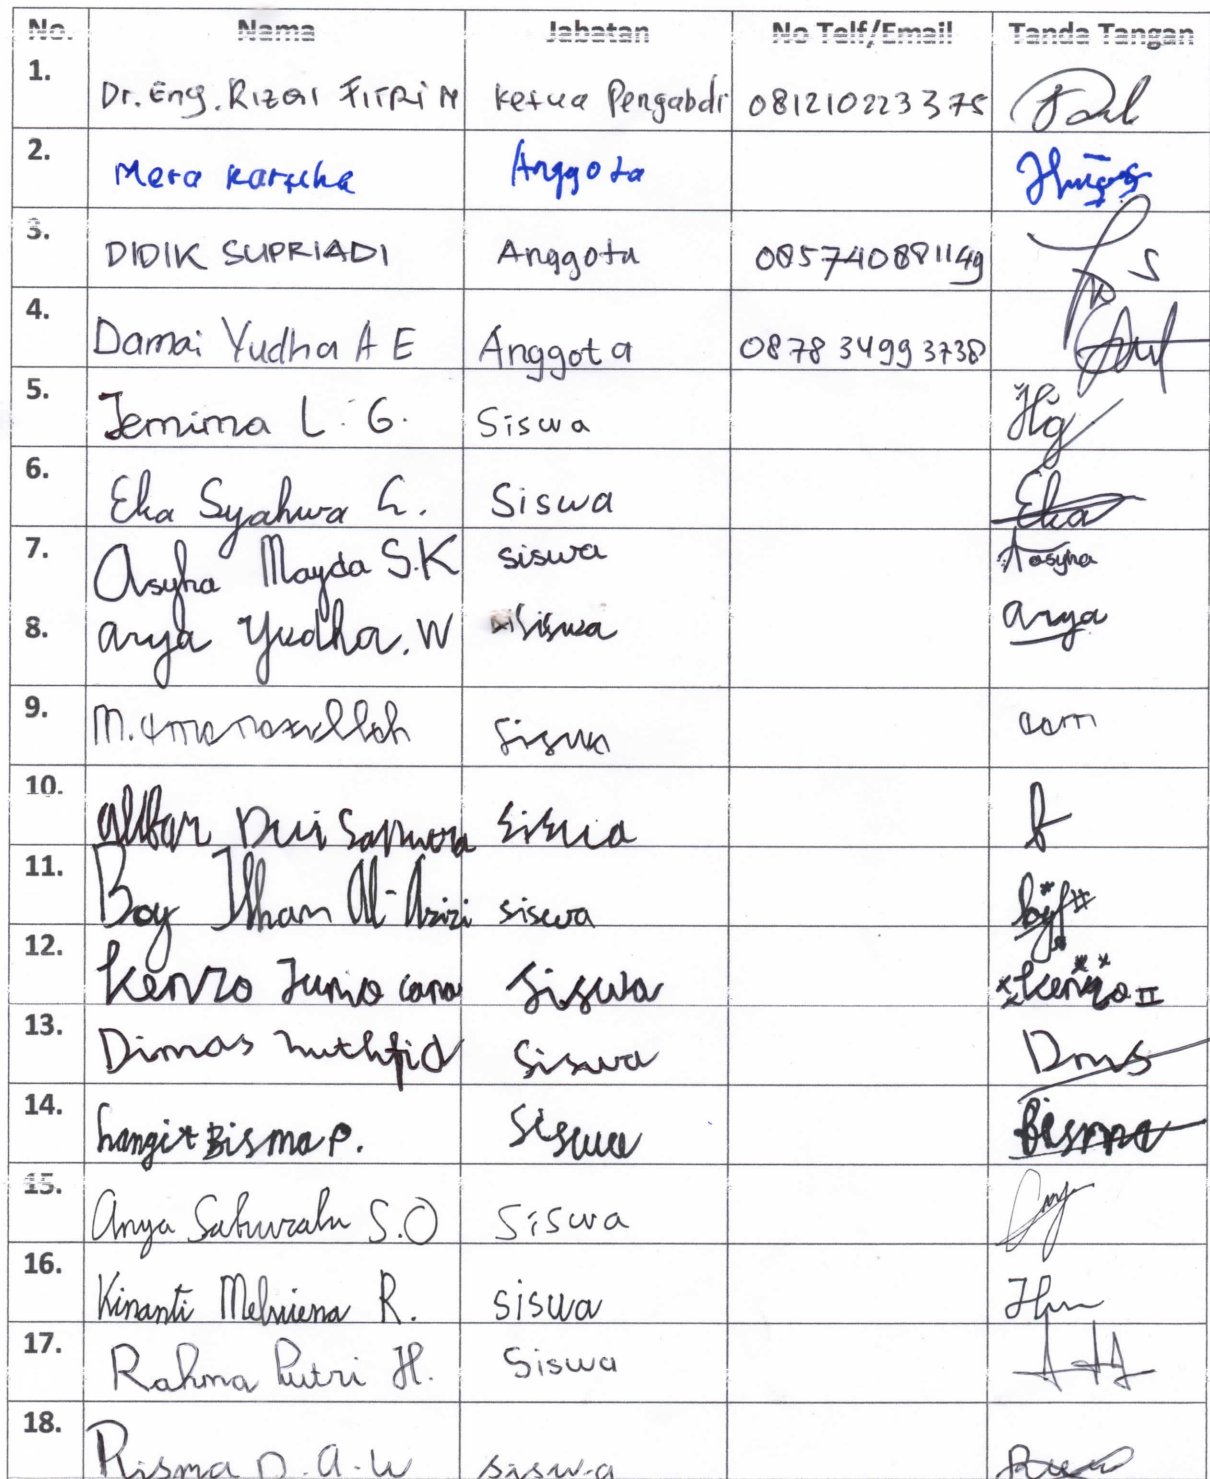 No. Nama Jabatan No Telf/Email Tanda Tangan
1. Dr. Eng. Rizal Fitri N Ketua Pengabdi 081210223375
2. Mera Kartika Anggota
3. DIDIK SUPRIADI Anggota 085740881149
4. Damai Yudha A E Anggota 0878 3499 3738
5. Jemima L. G. Siswa
6. Eka Syahwa G. Siswa Eka
7. Asyha Mayda S.K siswa Aasyha
8. arya Yudha. W Siswa arya
9. M. Amanaxulloh siswa aam
10. Akbar Dwi Saputra siswa
11. Boy Ilham Al-Azizi siswa
12. Kenzo Junio cana Siswa Kenzo II
13. Dimas Muthfid Siswa Dms
14. Langit Bisma P. Siswa Bisma
15. Anya Sakurahn S.O Siswa
16. Kinanti Melviena R. siswa
17. Rahma Putri H. Siswa
18. Risma D.A.W siswa